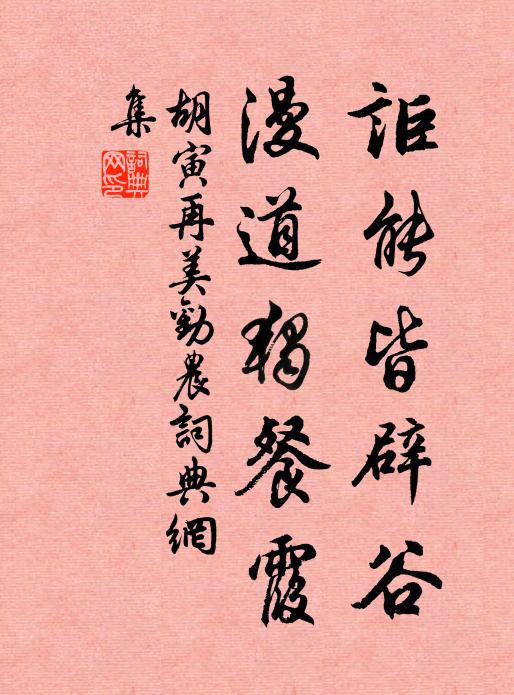 詎能皆辟谷
漫道獨餐霞
胡寅再美勸農詞典網
集
詞典
网印